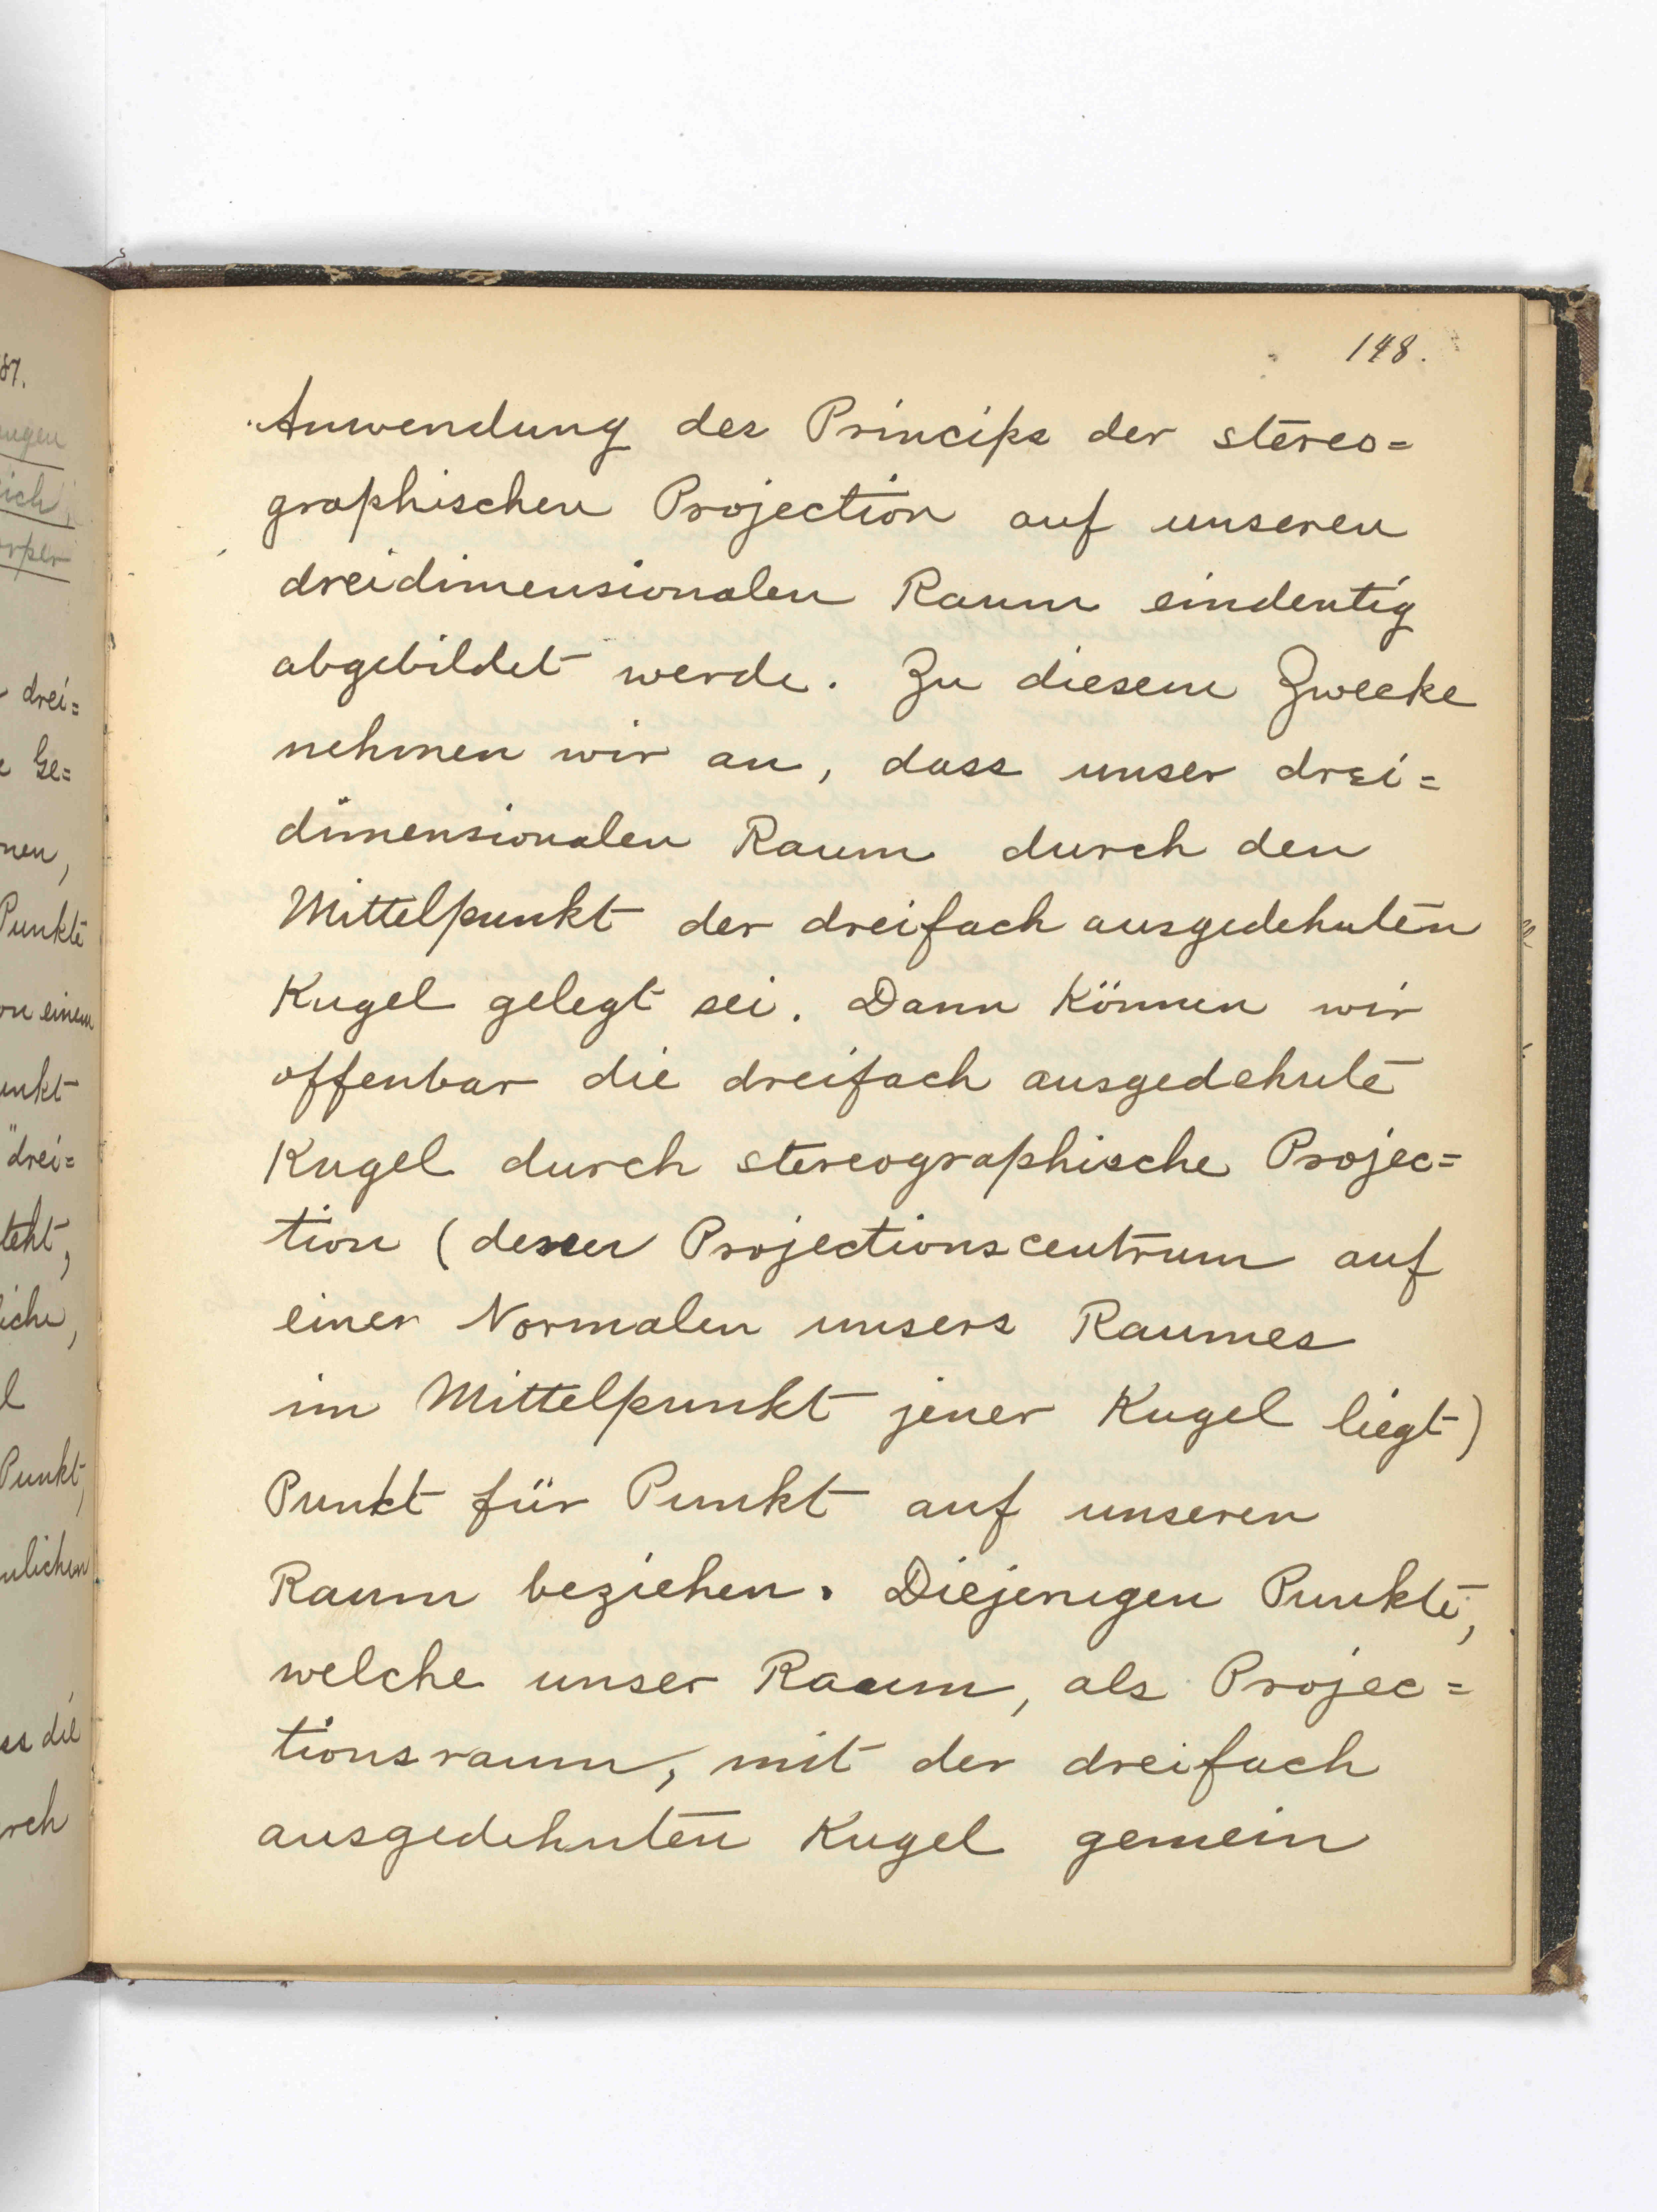 148.
Anwendung des Princips der stereo=
graphischen Projection auf unseren
dreidimensionalen Raum eindeutig
abgebildet werde. Zu diesem Zwecke
nehmen wir an, dass unser drei=
dimensionalen Raum durch den
Mittelpunkt der dreifach ausgedehnten
Kugel gelegt sei. Dann können wir
offenbar die dreifach ausgedehnte
Kugel durch stereographische Projec=
tion (deren Projectionscentrum auf
einer Normalen unsers Raumes
im Mittelpunkt jener Kugel liegt)
Punkt für Punkt auf unseren
Raum beziehen. Diejenigen Punkte,
welche unser Raum, als Projec=
tionsraum, mit der dreifach
ausgedehnten Kugel gemein
87.
drei=
Ge=
nen,
Punkte
einem
unkt
drei=
teht,
iche,
l
Punkt,
nlichen
ss die
rch